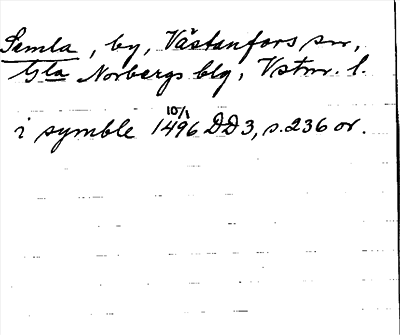 Semla, by, Västanfors sn,
Gla Norbergs blg, Vstm. l.
10/1
i symble 1496 DD3, s. 236 or.